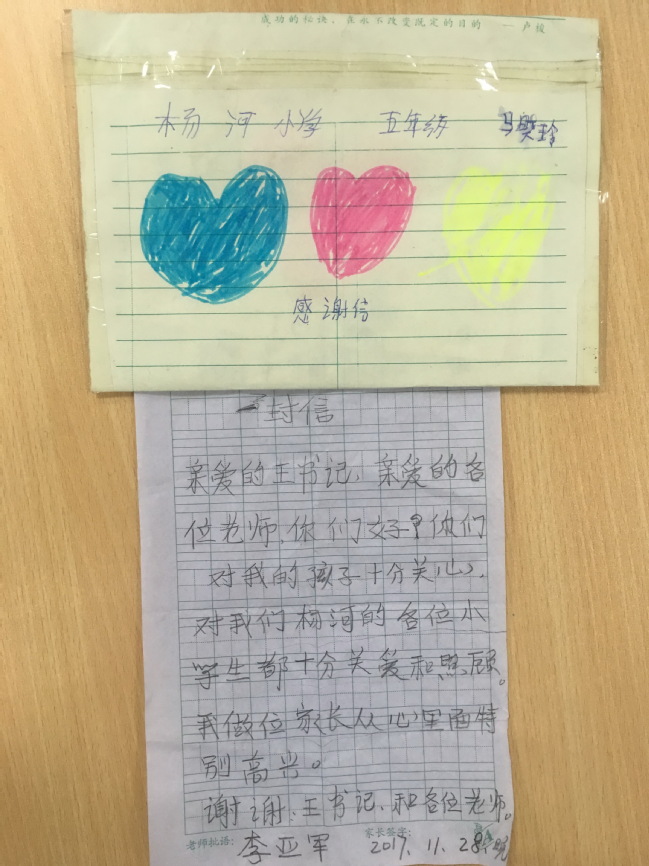 成功的秘诀，在永不改变既定的目的 — 卢梭
杨河小学 五年级 马樊玲
感谢信
一封信
亲爱的王书记、亲爱的各
位老师,你们好？你们
对我的孩子十分关心、
对我们杨河的各位小
学生都十分关爱和照顾。
我做位家长从心里面特
别高兴。
谢谢:王书记、和各位老师。
老师批语: 李亚军 家长签字: 2017.11.28